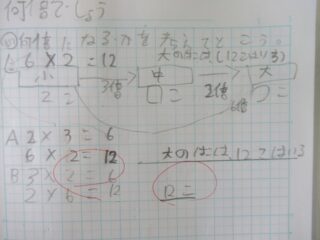 何倍でしょう
◎何倍になるかを考えてとこう。
6×2=12
大のはこは(12こはいる)
小 3倍 中 2倍 大
2こ □こ □こ
6倍
A 2×3=6
6×2=12
大のはこは、12こはいる
B 3×2=6
2×6=12
12こ